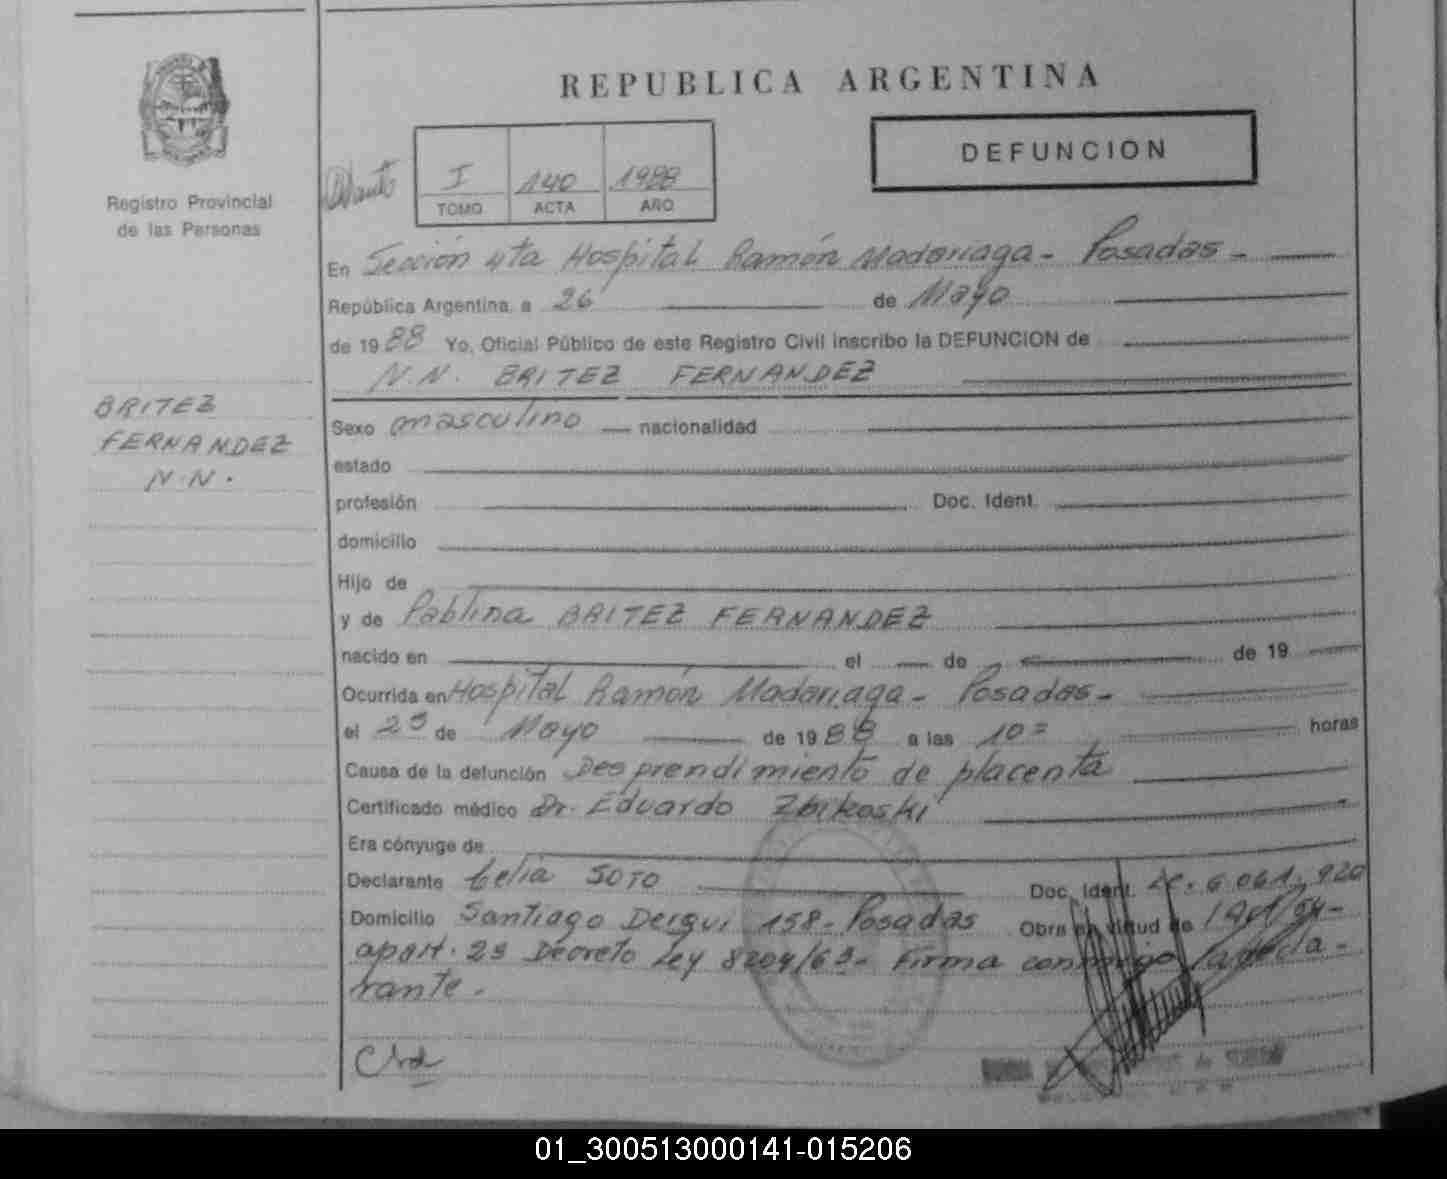 REPUBLICA ARGENTINA
DEFUNCION
I 140 1988
TOMO ACTA AÑO
Registro Provincial
de las Personas
En Sección 4ta Hospital Ramón Madariaga - Posadas -
República Argentina, a 26 de Mayo
de 1988 Yo, Oficial Público de este Registro Civil inscribo la DEFUNCION de
N.N. BRITEZ FERNANDEZ
BRITEZ
FERNANDEZ
N.N.
Sexo masculino nacionalidad
estado
profesión Doc. Ident.
domicilio
Hijo de
y de Pablina BRITEZ FERNANDEZ
nacido en el de de 19
Ocurrida en Hospital Ramón Madariaga - Posadas -
el 25 de Mayo de 1988 a las 10 horas
Causa de la defunción Desprendimiento de placenta
Certificado médico Dr. Eduardo Zbikoski
Era cónyuge de
Declarante Celia SOTO Doc. Ident. LC. 6.061.920
Domicilio Santiago Derqui 158 - Posadas Obra en virtud de
apart. 2º Decreto Ley 8204/63 - Firma conmigo la decla-
rante.
01_300513000141-015206